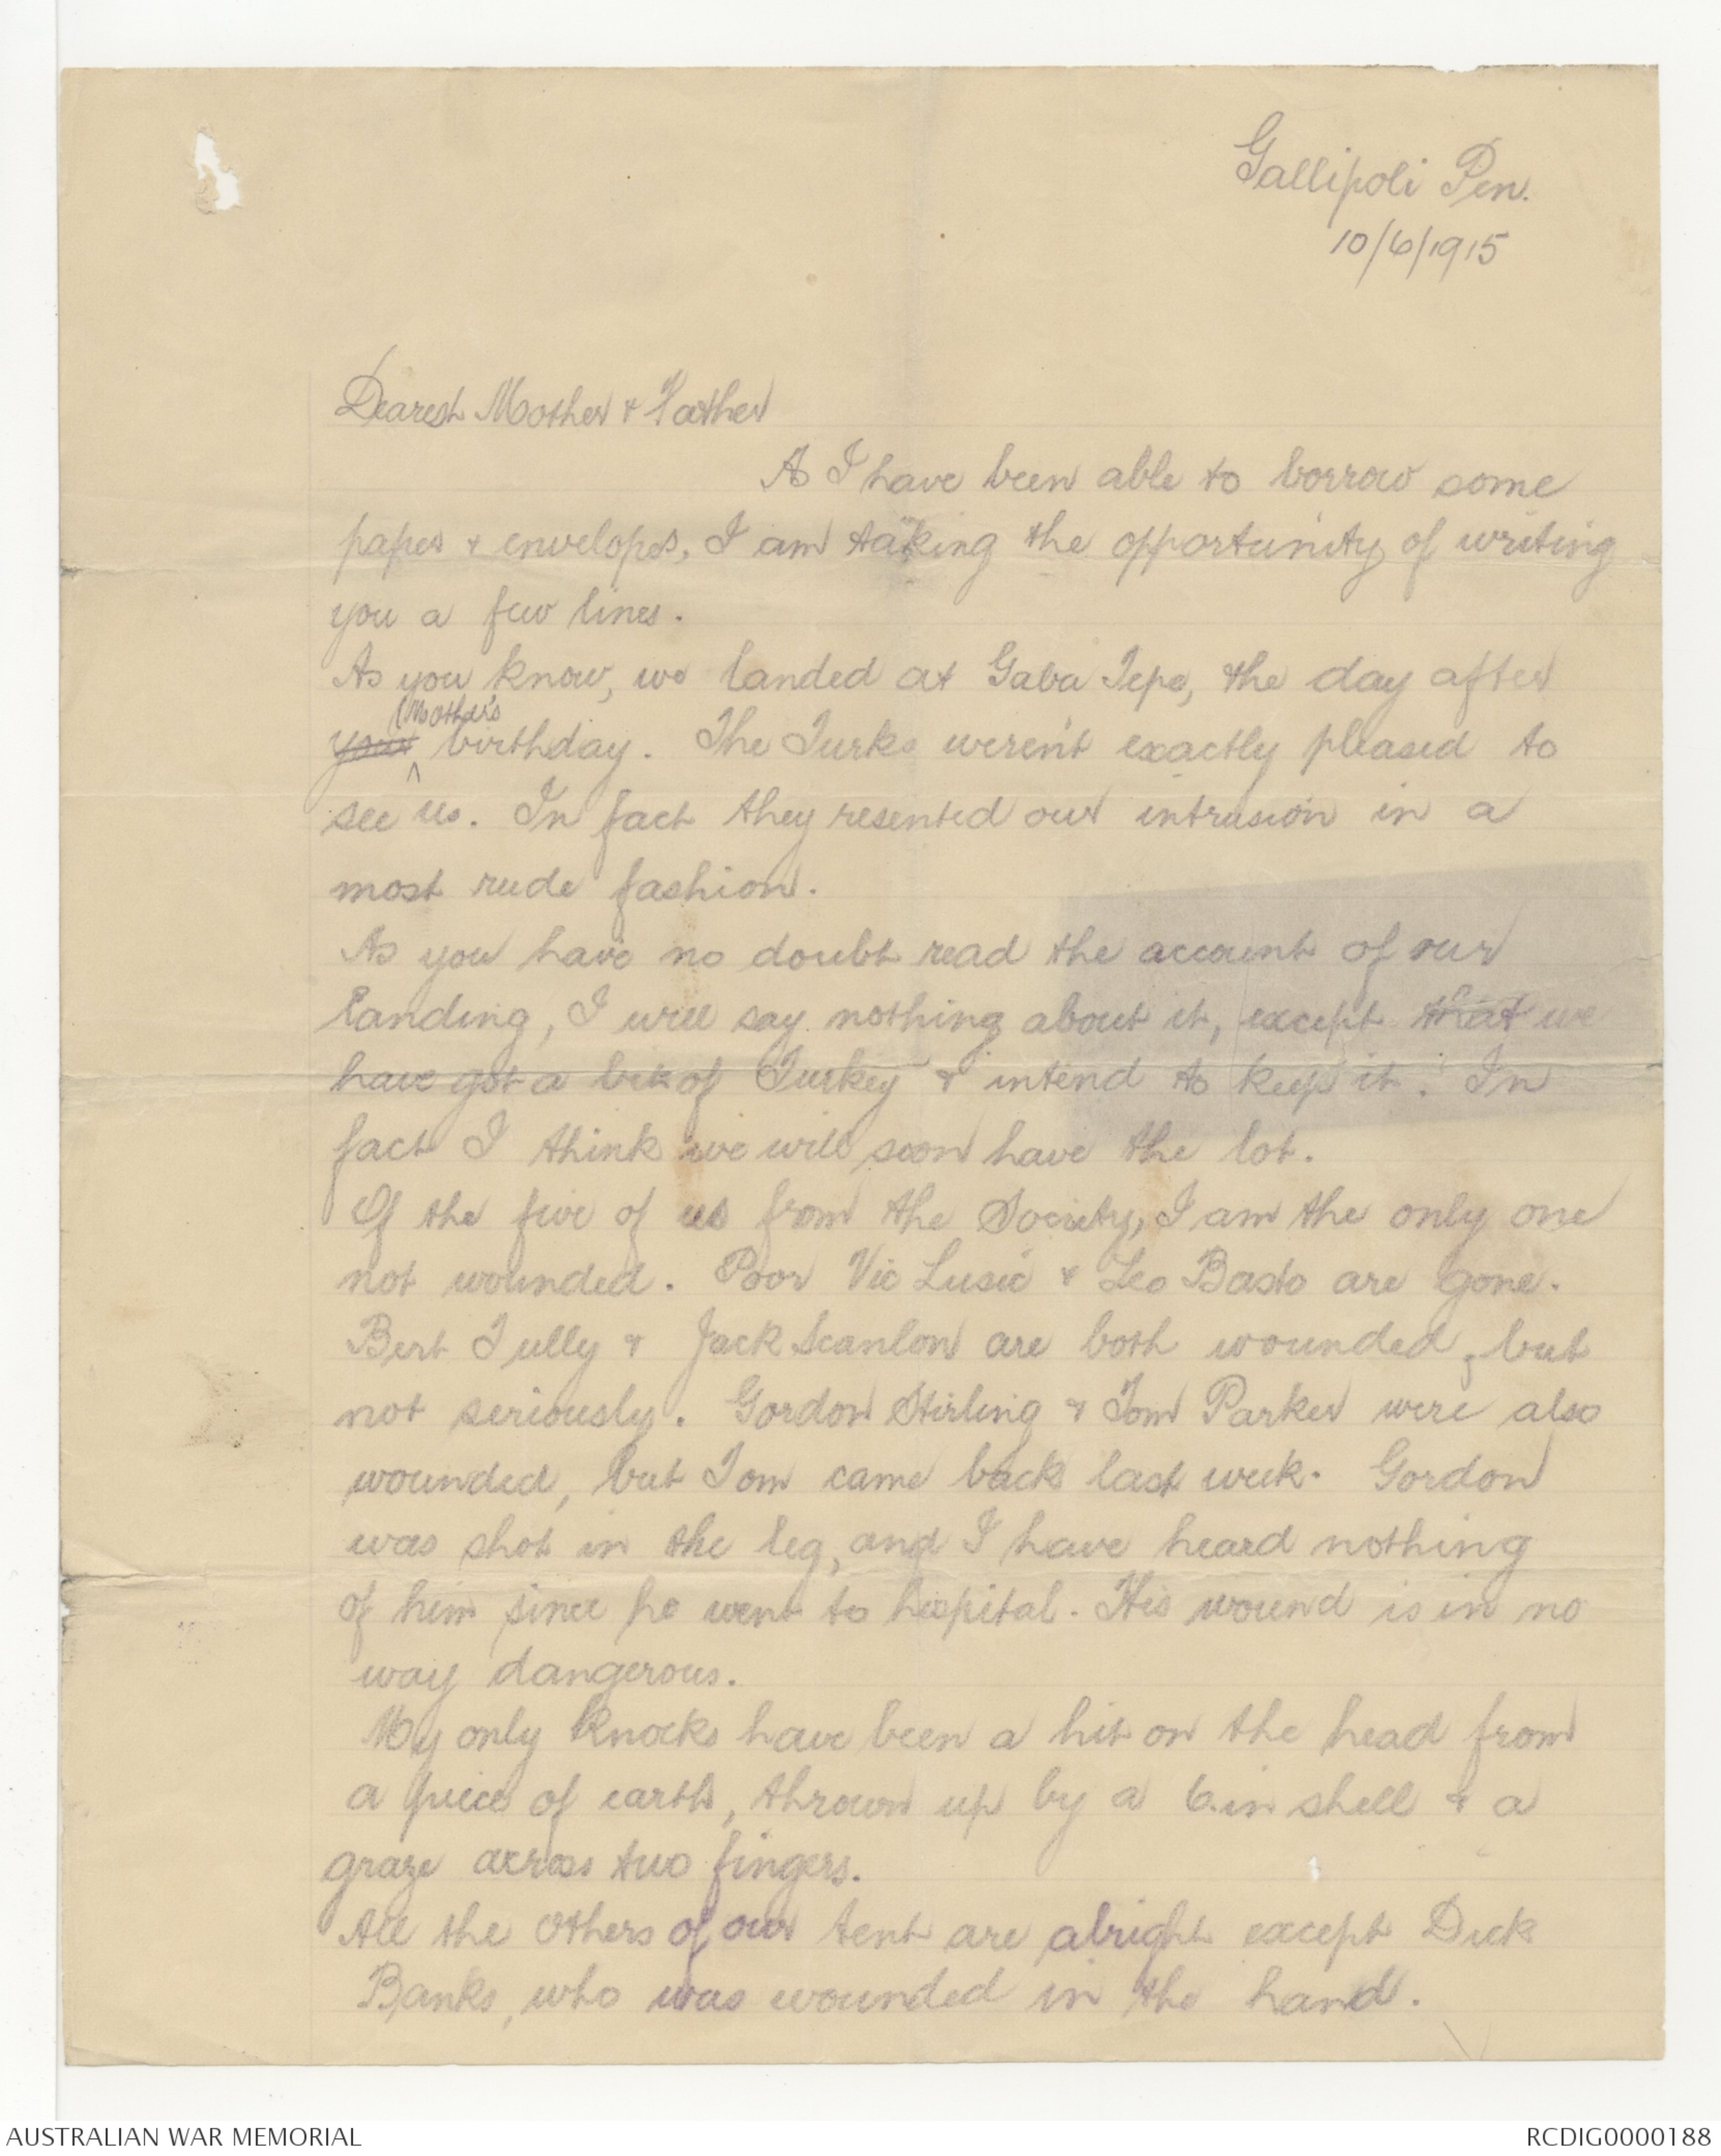 Gallipoli Pen.
10/6/1915
Dearest Mother & Father
As I have been able to borrow some
paper & envelopes, I am taking the opportunity of writing
you a few lines.
As you know, we landed at Gaba Tepe, the day after
(Mother's
your birthday. The Turks weren't exactly pleased to
see us. In fact they resented our intrusion in a
most rude fashion.
As you have no doubt read the account of our
landing, I will say nothing about it, except that we
have got a bit of Turkey & intend to keep it. In
fact I think we will soon have the lot.
Of the five of us from the Society, I am the only one
not wounded. Poor Vic & Leo are gone.
Bert Tully & Jack Scanlon are both wounded, but
not seriously. Gordon Stirling & Tom Parker were also
wounded, but Tom came back last week. Gordon
was shot in the leg, and I have heard nothing
of him since he went to hospital. His wound is in no
way dangerous.
My only knocks have been a hit on the head from
a piece of earth, thrown up by a 6.in shell & a
graze across two fingers.
All the others of our tent are alright except Dick
Banks, who was wounded in the hand.
AUSTRALIAN WAR MEMORIAL
RCDIG0000188